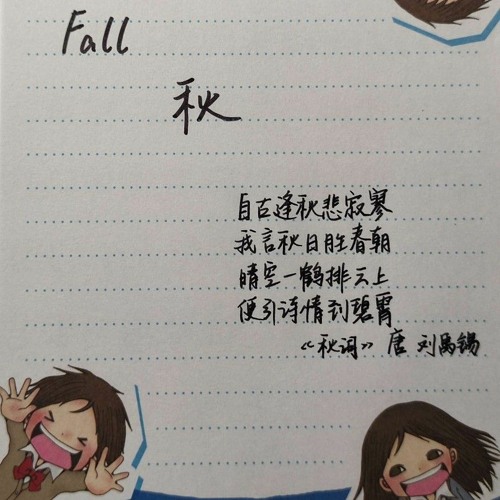 Fall
秋
自古逢秋悲寂寥
我言秋日胜春朝
晴空一鹤排云上
便引诗情到碧霄
《秋词》 唐 刘禹锡